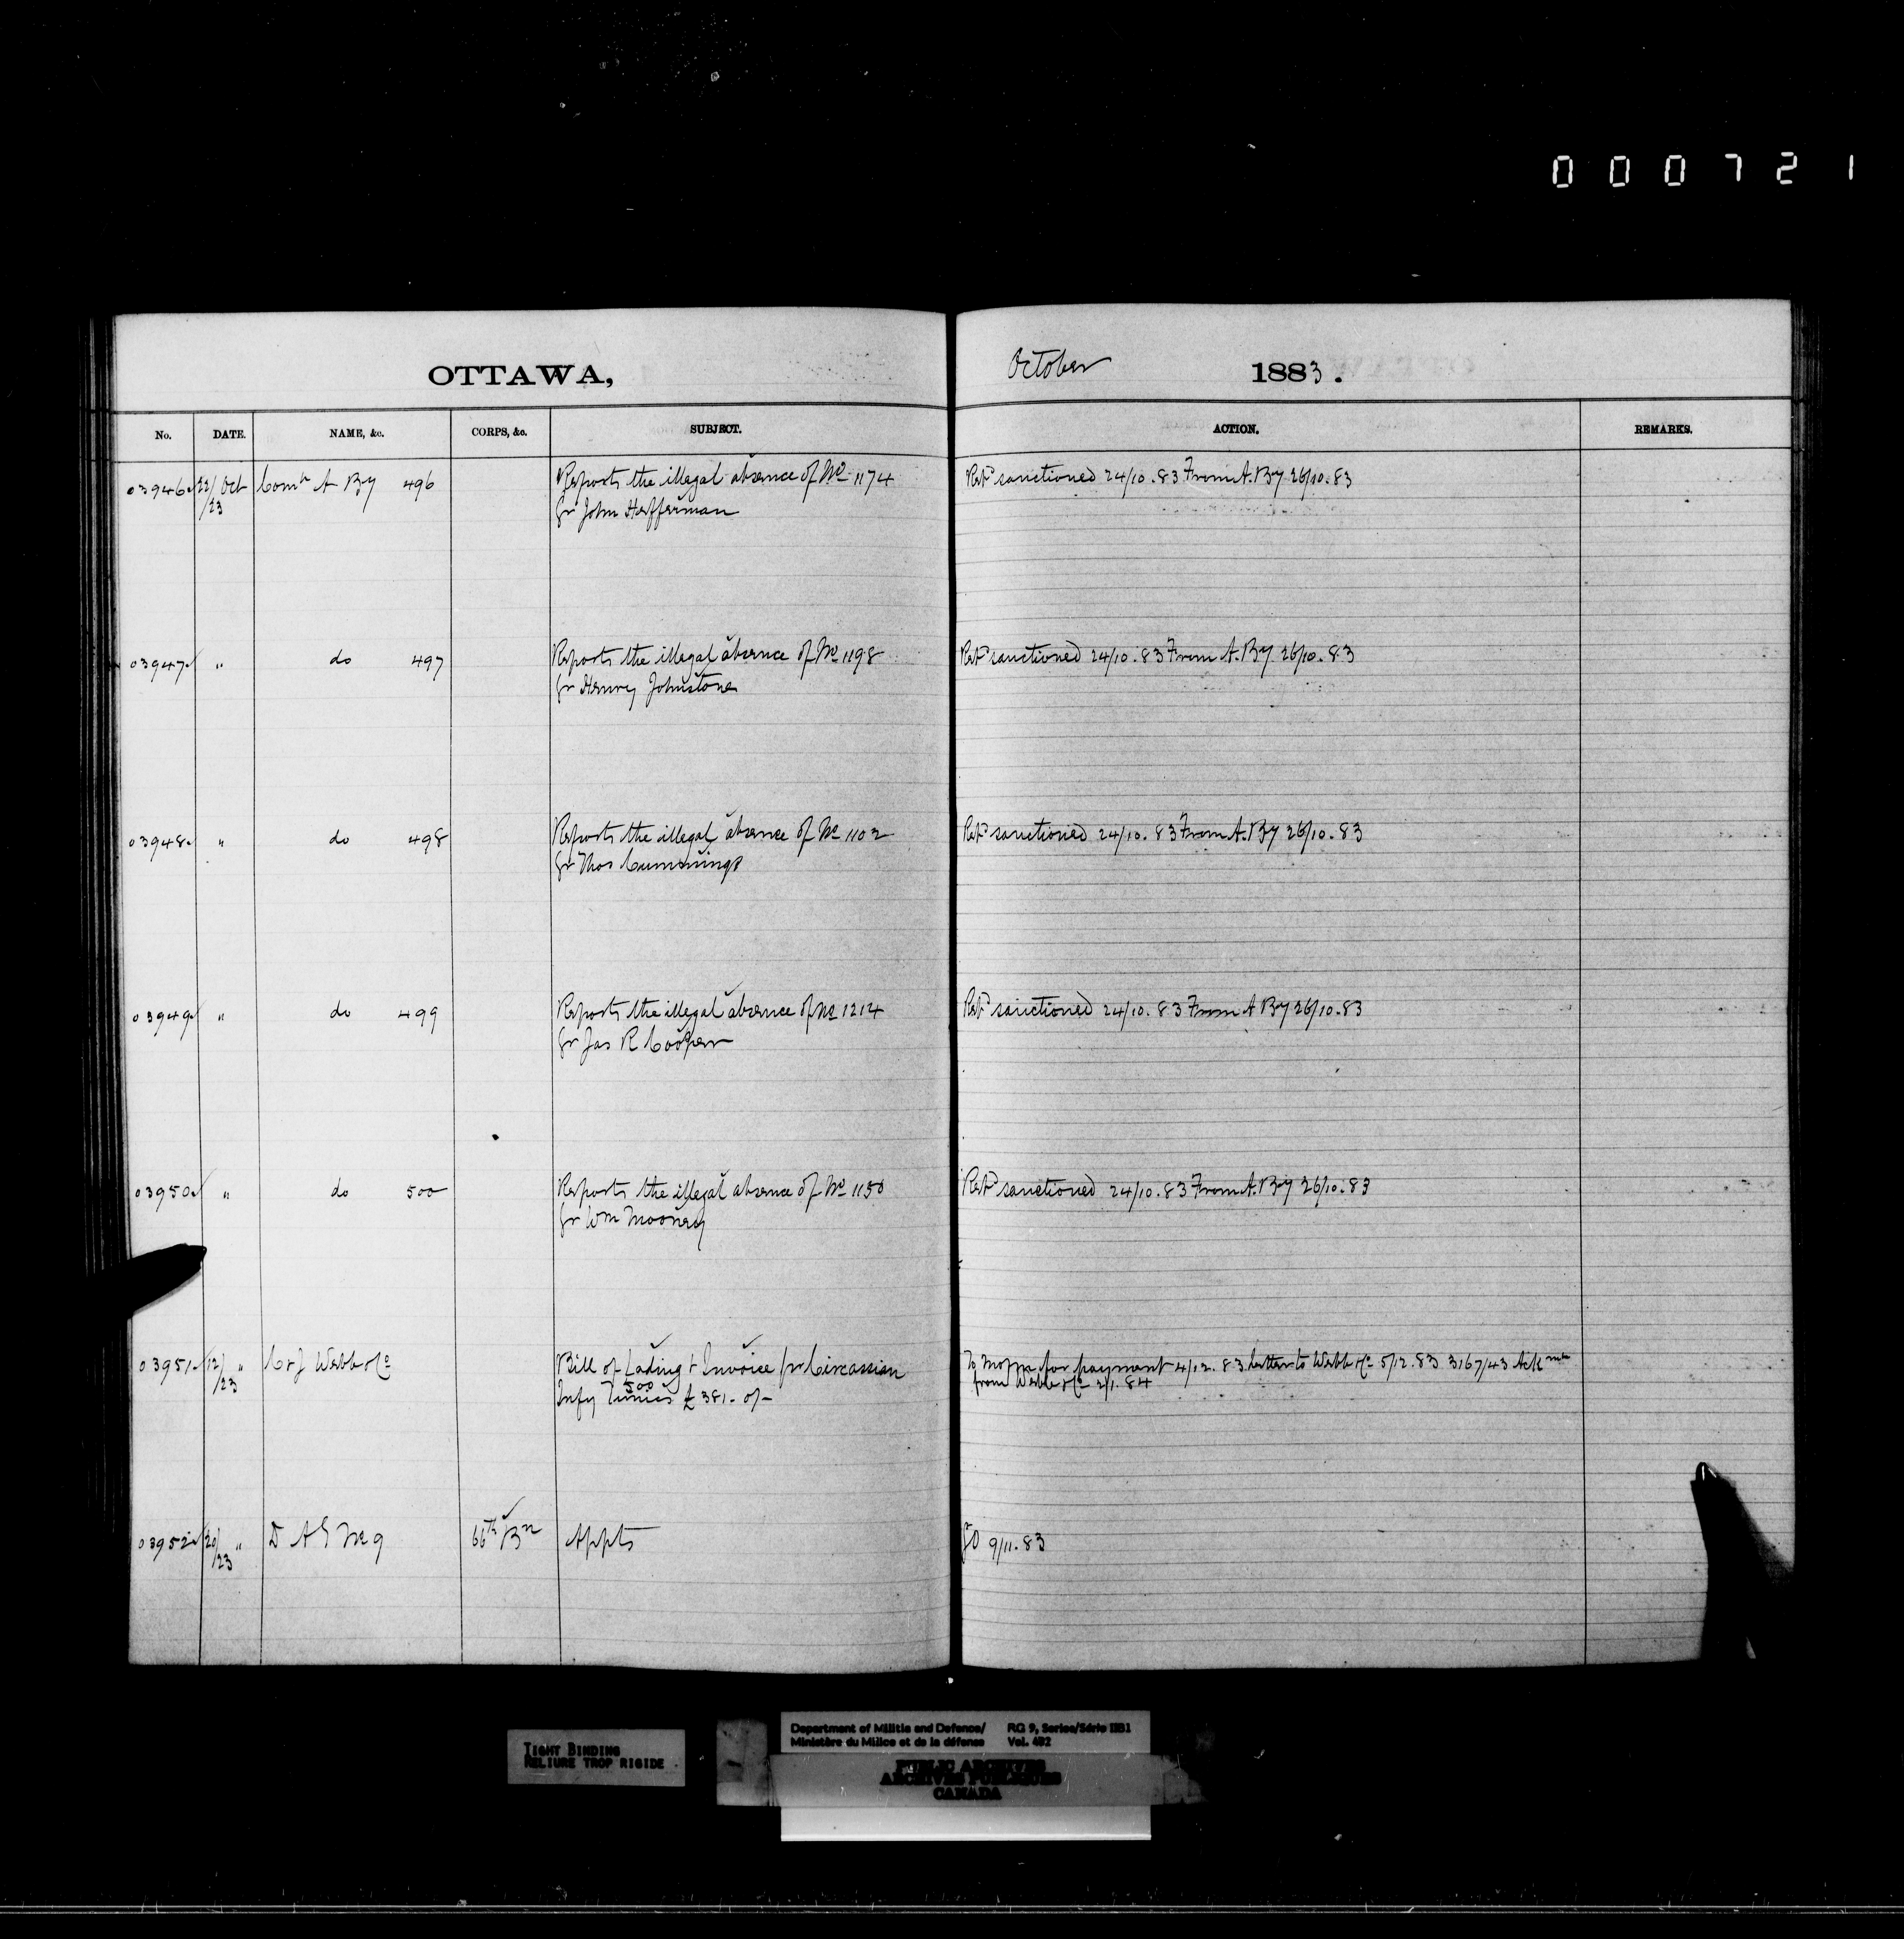 000721
OTTAWA,
October 1883.
No. DATE. NAME, &c. CORPS, &c. SUBJECT. ACTION. REMARKS.
03946 22/23 Oct Comt A By 496 Reports the illegal absence of No 1174 Retd sanctioned 24/10.83 From A. By 26/10.83
Gr John Hefferman
03947 " do 497 Reports the illegal absence of No 1198 Retd sanctioned 24/10.83 From A. By 26/10.83
Gr Henry Johnstone
03948 " do 498 Reports the illegal absence of No 1102 Retd sanctioned 24/10.83 From A. By 26/10.83
Gr Thos Cummings
03949 " do 499 Reports the illegal absence of No 1214 Retd sanctioned 24/10.83 From A By 26/10.83
Gr Jas R Cooper
03950 " do 500 Reports the illegal absence of No 1150 Retd sanctioned 24/10.83 From A. By 26/10.83
Gr Wm Mooney
03951 12/23 " C & J Webb & Co Bill of Lading & Invoice pr Circassian To for payment 4/12.83 Letter to Webb & Co 5/12.83 3167/43 Ack
500
Infy Tunics £381-0/- from Webb & Co 2/1.84
03952 20/23 " D A G No 9 66th Bn Appts GO 9/11.83
TIGHT BINDING
RELIURE TROP RIGIDE
Department of Militia and Defence/ RG 9, Series/Série IIB1
Ministère du Milice et de la défense Vol. 482
PUBLIC ARCHIVES
ARCHIVES PUBLIQUES
CANADA